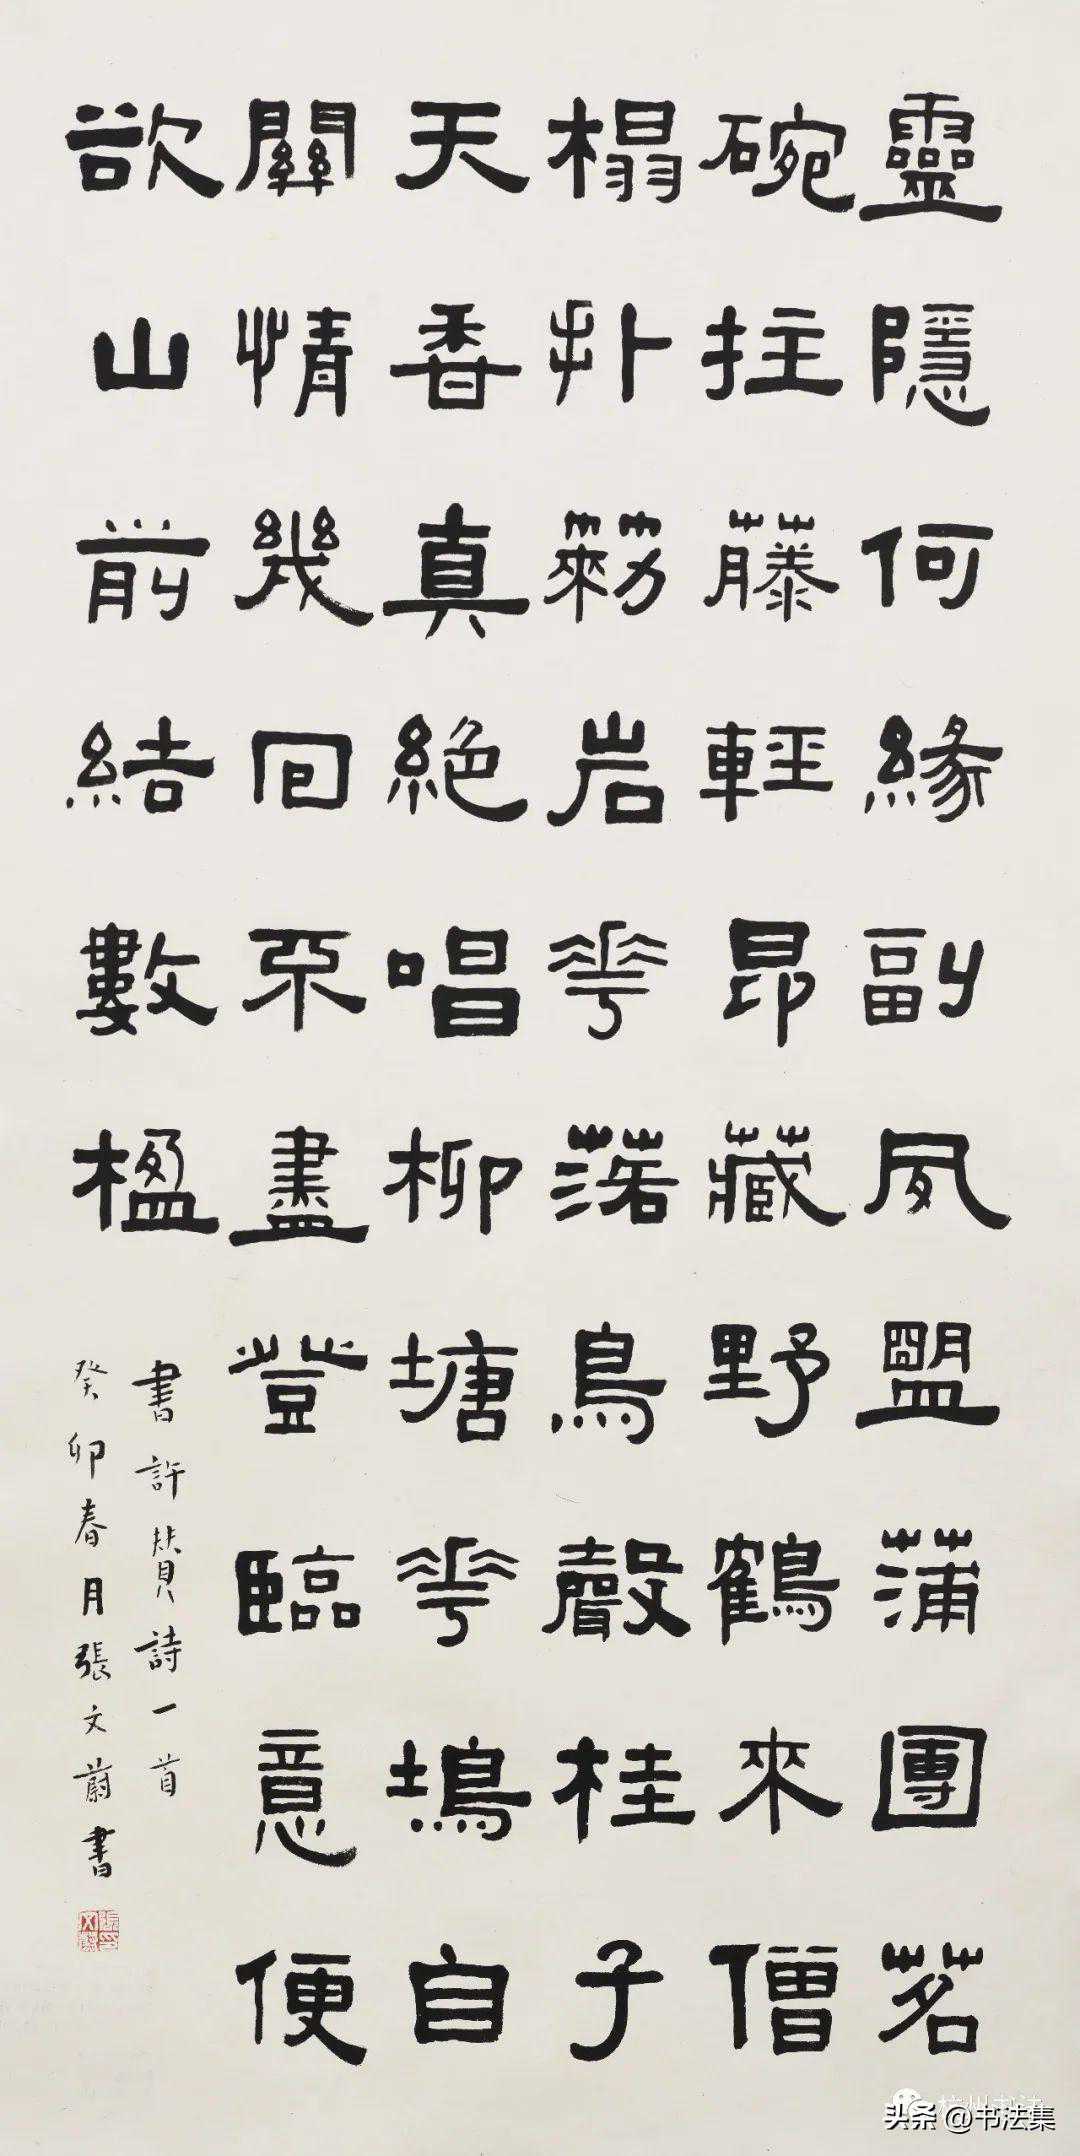 靈隱何緣副夙盟蒲團茗
碗拄藤輕昂藏野鶴來僧
榻扑簌岩花落鳥聲桂子
天香真絕唱柳塘花塢自
關情幾回不盡登臨意便
欲山前結數楹
書許贊詩一首
癸卯春月張文蔚書
头条 @书法集
杭州书法